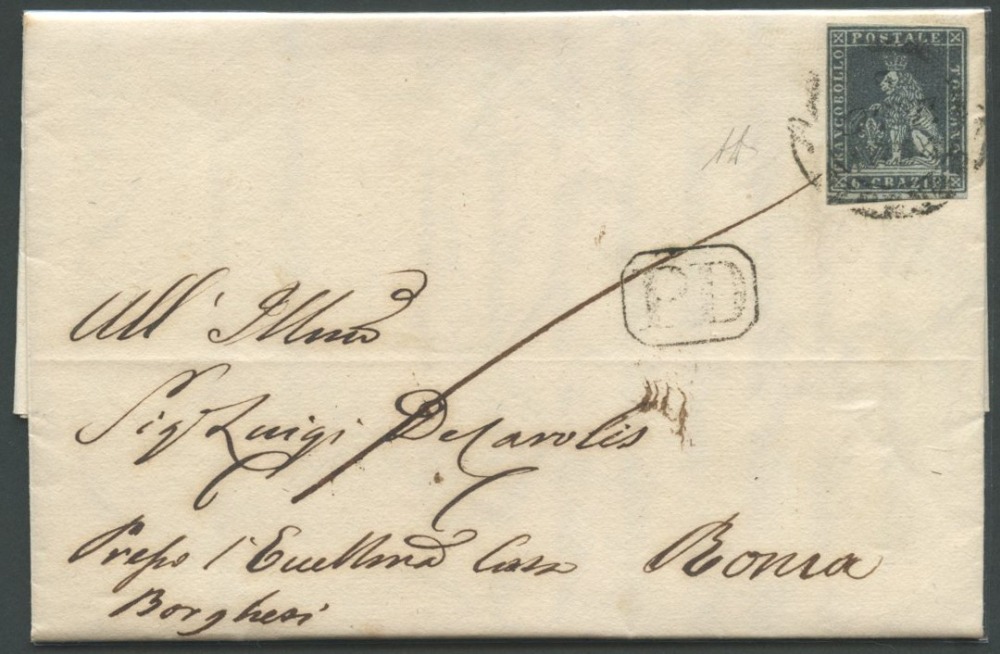 POSTALE
FRANCOBOLLO
TOSCANO
6 CRAZIE
PD
All' Illmo
Sigr Luigi DeCarolis
Presso l'Eccellma Casa
Borghesi
Roma